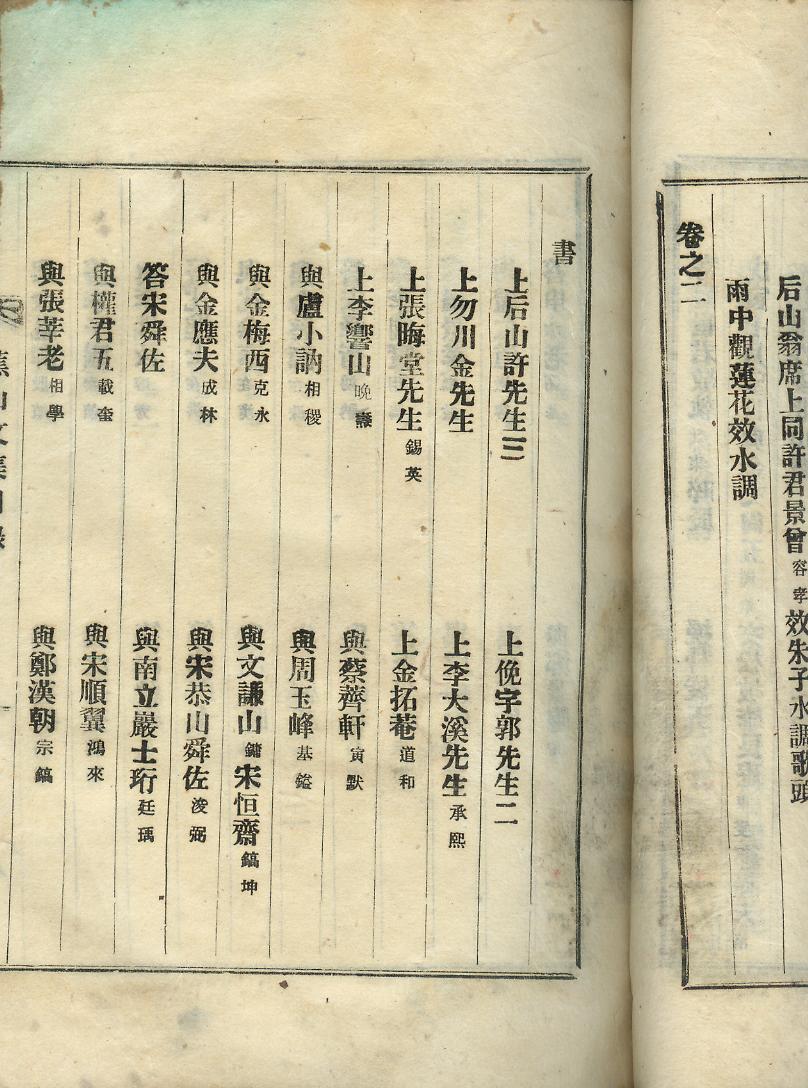 后山翁席上同許君景曾容孝效朱子水調歌頭
雨中觀蓮花效水調
卷之二
書
上后山許先生三
上俛宇郭先生二
上勿川金先生
上李大溪先生承熙
上張晦堂先生錫英
上金拓菴道和
上李響山晚
與蔡薺軒寅默
與盧小訥相稷
與周玉峰基鎰
與金梅西克永
與文謙山鏞宋恒齋鎬坤
與金應夫成林
與宋恭山舜佐浚弼
答宋舜佐
與南立巖士珩廷瑀
與權君五載奎
與宋順翼鴻來
與張莘老相學
與鄭漢朝宗鎬
山文集目錄